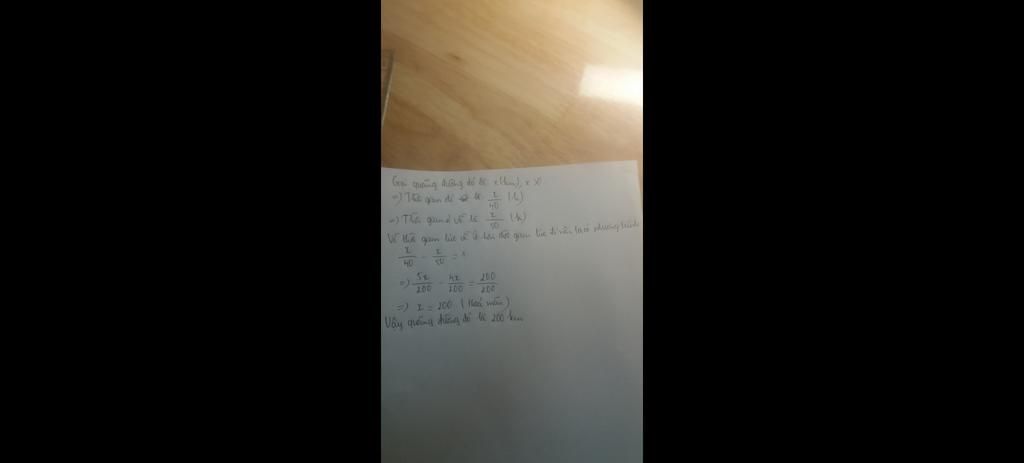 Gọi quãng đường đó là x(km), x>0
=) Thời gian đi là x/40 (h)
=) Thời gian về là x/50 (h)
Vì thời gian lúc về hơn thời gian lúc đi nên ta có phương trình
x/40 - x/50 = 1
=) 5x/200 - 4x/200 = 200/200
=) x = 200 (thoả mãn)
Vậy quãng đường đó là 200 km